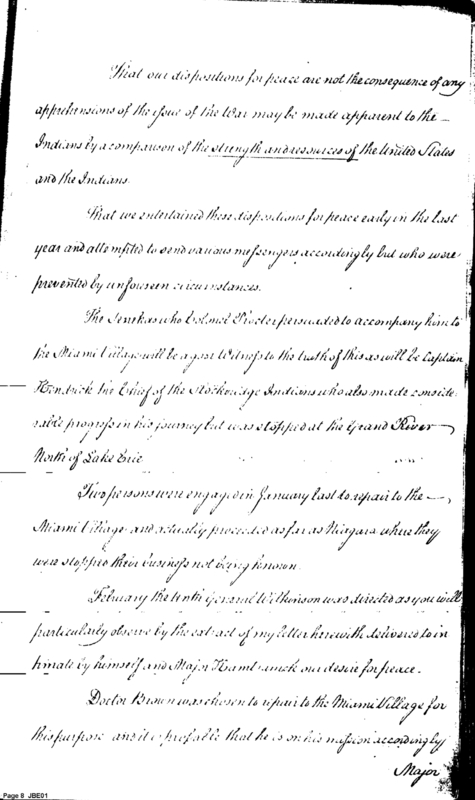 That our dispositions for peace are not the consequence of any
apprehensions of the issue of the War may be made apparent to the
Indians by a comparison of the strength and resources of the United States
and the Indians.
That we entertained these dispositions for peace early in the last
year and attempted to send various messengers accordingly but who were
prevented by unforeseen circumstances.
The Senekas who Colonel Procter persuaded to accompany him to
the Miami Village will be a good Witness to the truth of this as will be Captain
Hendrick the Chief of the Stockbridge Indians who also made conside-
rable progress in his journey but was stopped at the Grand River
North of Lake Erie
Two persons were engaged in January last to repair to the
Miami Village and actually proceeded as far as Niagara where they
were stopped their business not being known.
February the tenth General Wilkinson was directed as you will
particularly observe by the extract of my letter herewith delivered to in
timate by himself and Major Hamtramck our desire for peace.
Doctor Brown was chosen to repair to the Miami Village for
this purpose and it is probable that he is on his mission accordingly
Major
Page 8 JBE01